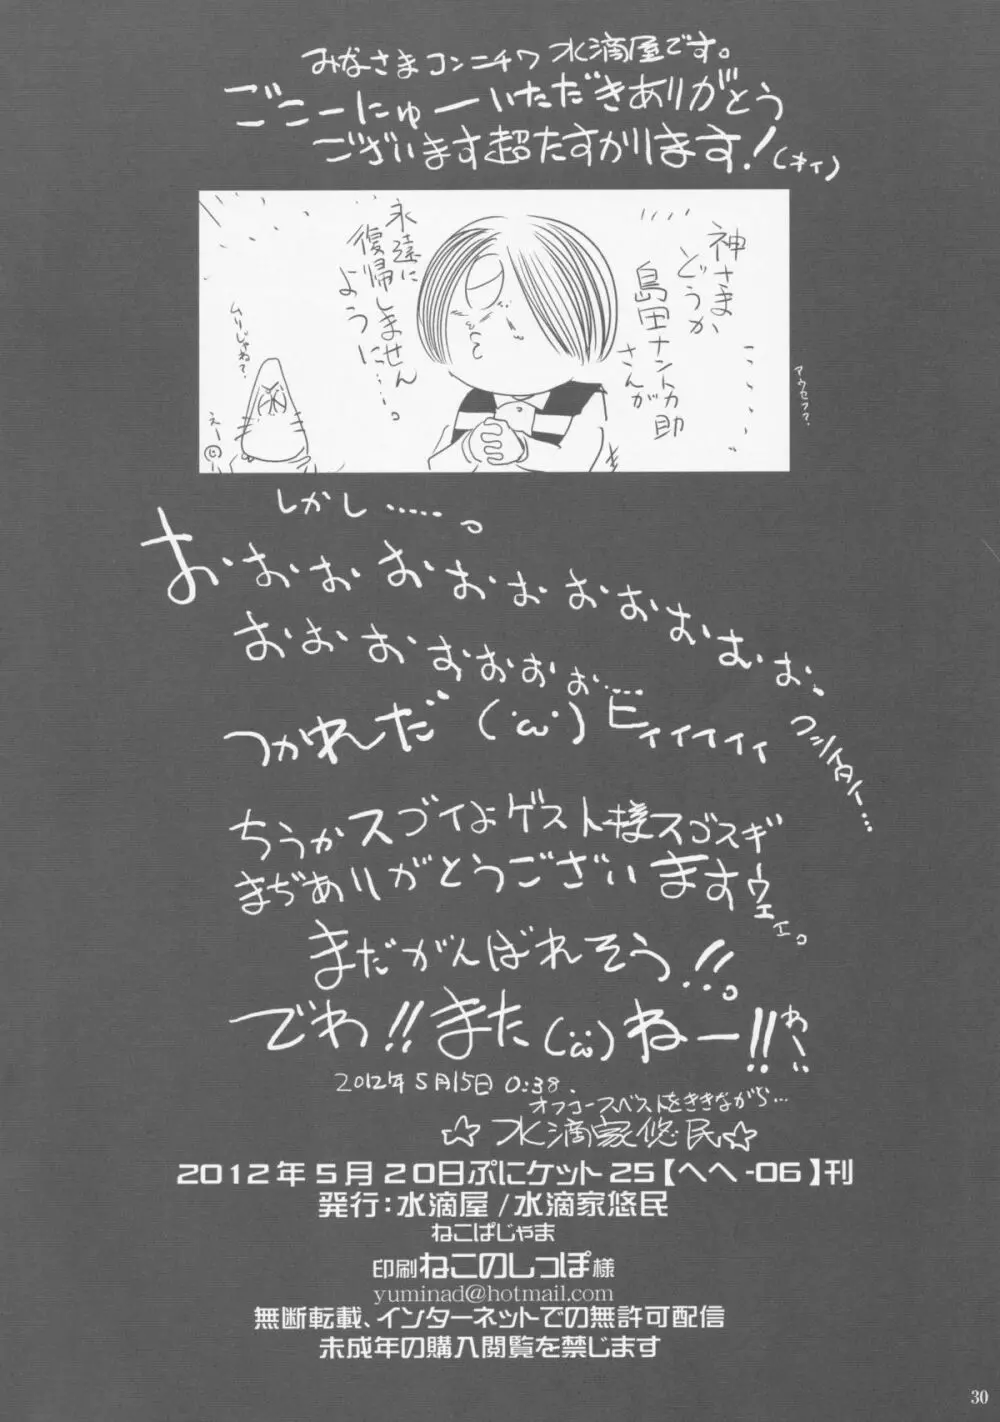 みなさまコンニチワ 水滴屋です。
ごこーにゅーいただきありがとう
ございます超たすかります!(オイ)
神さま
どうか
島田ナントカ助
さんが
永遠に
復帰しません
ように…。
ムリじゃね?
えー
しかし……。
おおおおおおおおおおおお。
おおおおおおおお……
つかれただ(・ω・)ヒィィィィィ
ちうかスゴイよゲスト様スゴスギ
まぢありがとうございますーウェェ。
まだがんばれそう!!。
でわ!!また(・ω・)ねー!!
わーい
2012年5月15日 0:38.
オフコースベストをききながら…
☆水滴家悠民☆
2012年5月20日ぷにケット25【へへ-06】刊
発行:水滴屋/水滴家悠民
ねこぱじゃま
印刷ねこのしっぽ様
yuminad@hotmail.com
無断転載、インターネットでの無許可配信
未成年の購入閲覧を禁じます
30